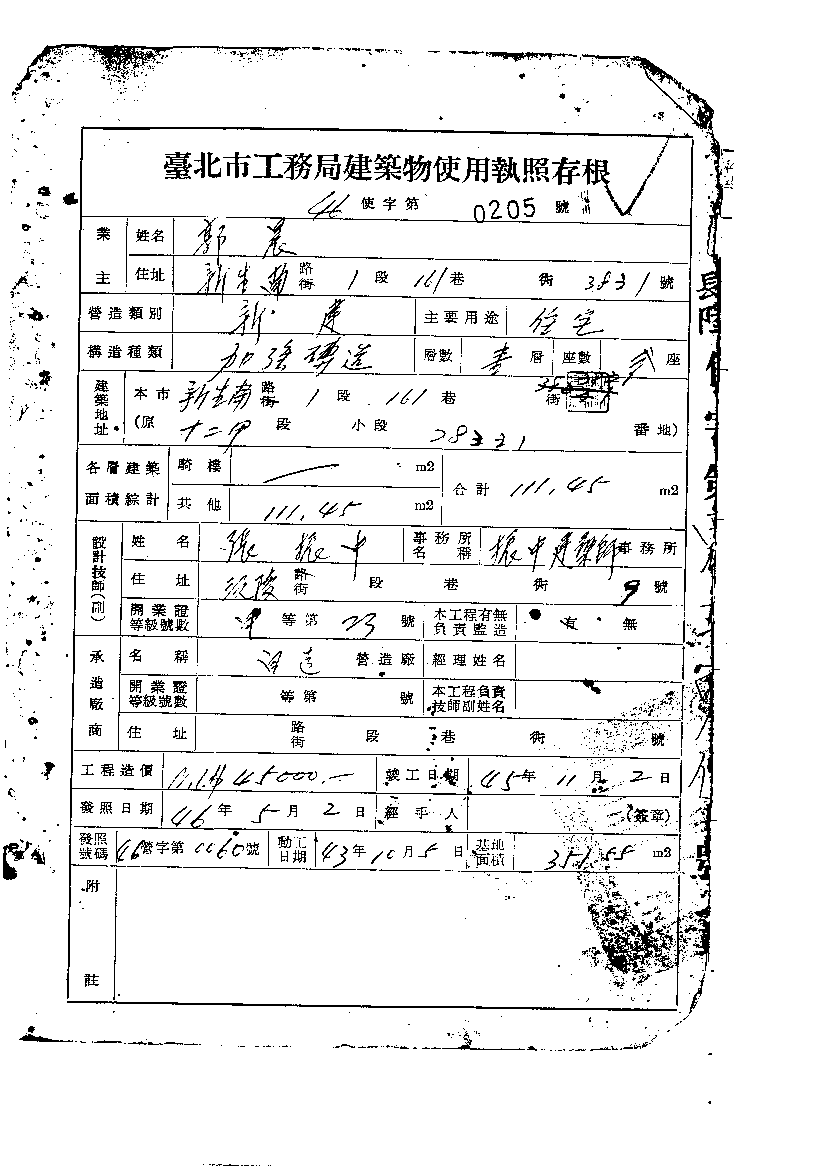 臺北市工務局建築物使用執照存根
46 使字第 0205 號
業主 姓名 郭 晨
住址 新生南 路街 1 段 161 巷 街 號
營造類別 新 建 主要用途 住宅
構造種類 加強磚造 層數 壹 層 座數 弍 座
建築地址 本市 新生南 路街 1 段 161 巷 街
(原 十二甲 段 小段 番地)
各層建築面積綜計 騎樓 — m2 合計 111.45 m2
其他 111.45 m2
設計技師(副) 姓名 張 振 中 事務所名稱 振中建築師事務所
住址 路街 段 巷 街 9 號
開業證等級號數 甲 等第 23 號 本工程有無負責監造 有 無
承造廠商 名稱 營造廠 經理姓名
開業證等級號數 等第 號 本工程負責技師副姓名
住址 路街 段 巷 街 號
工程造價 45000.— 竣工日期 45年 11月 2日
發照日期 46年 5月 2日 經手人 (簽章)
發照號碼 46營字第 0060號 動工日期 43年 10月 5日 基地面積 m2
附註